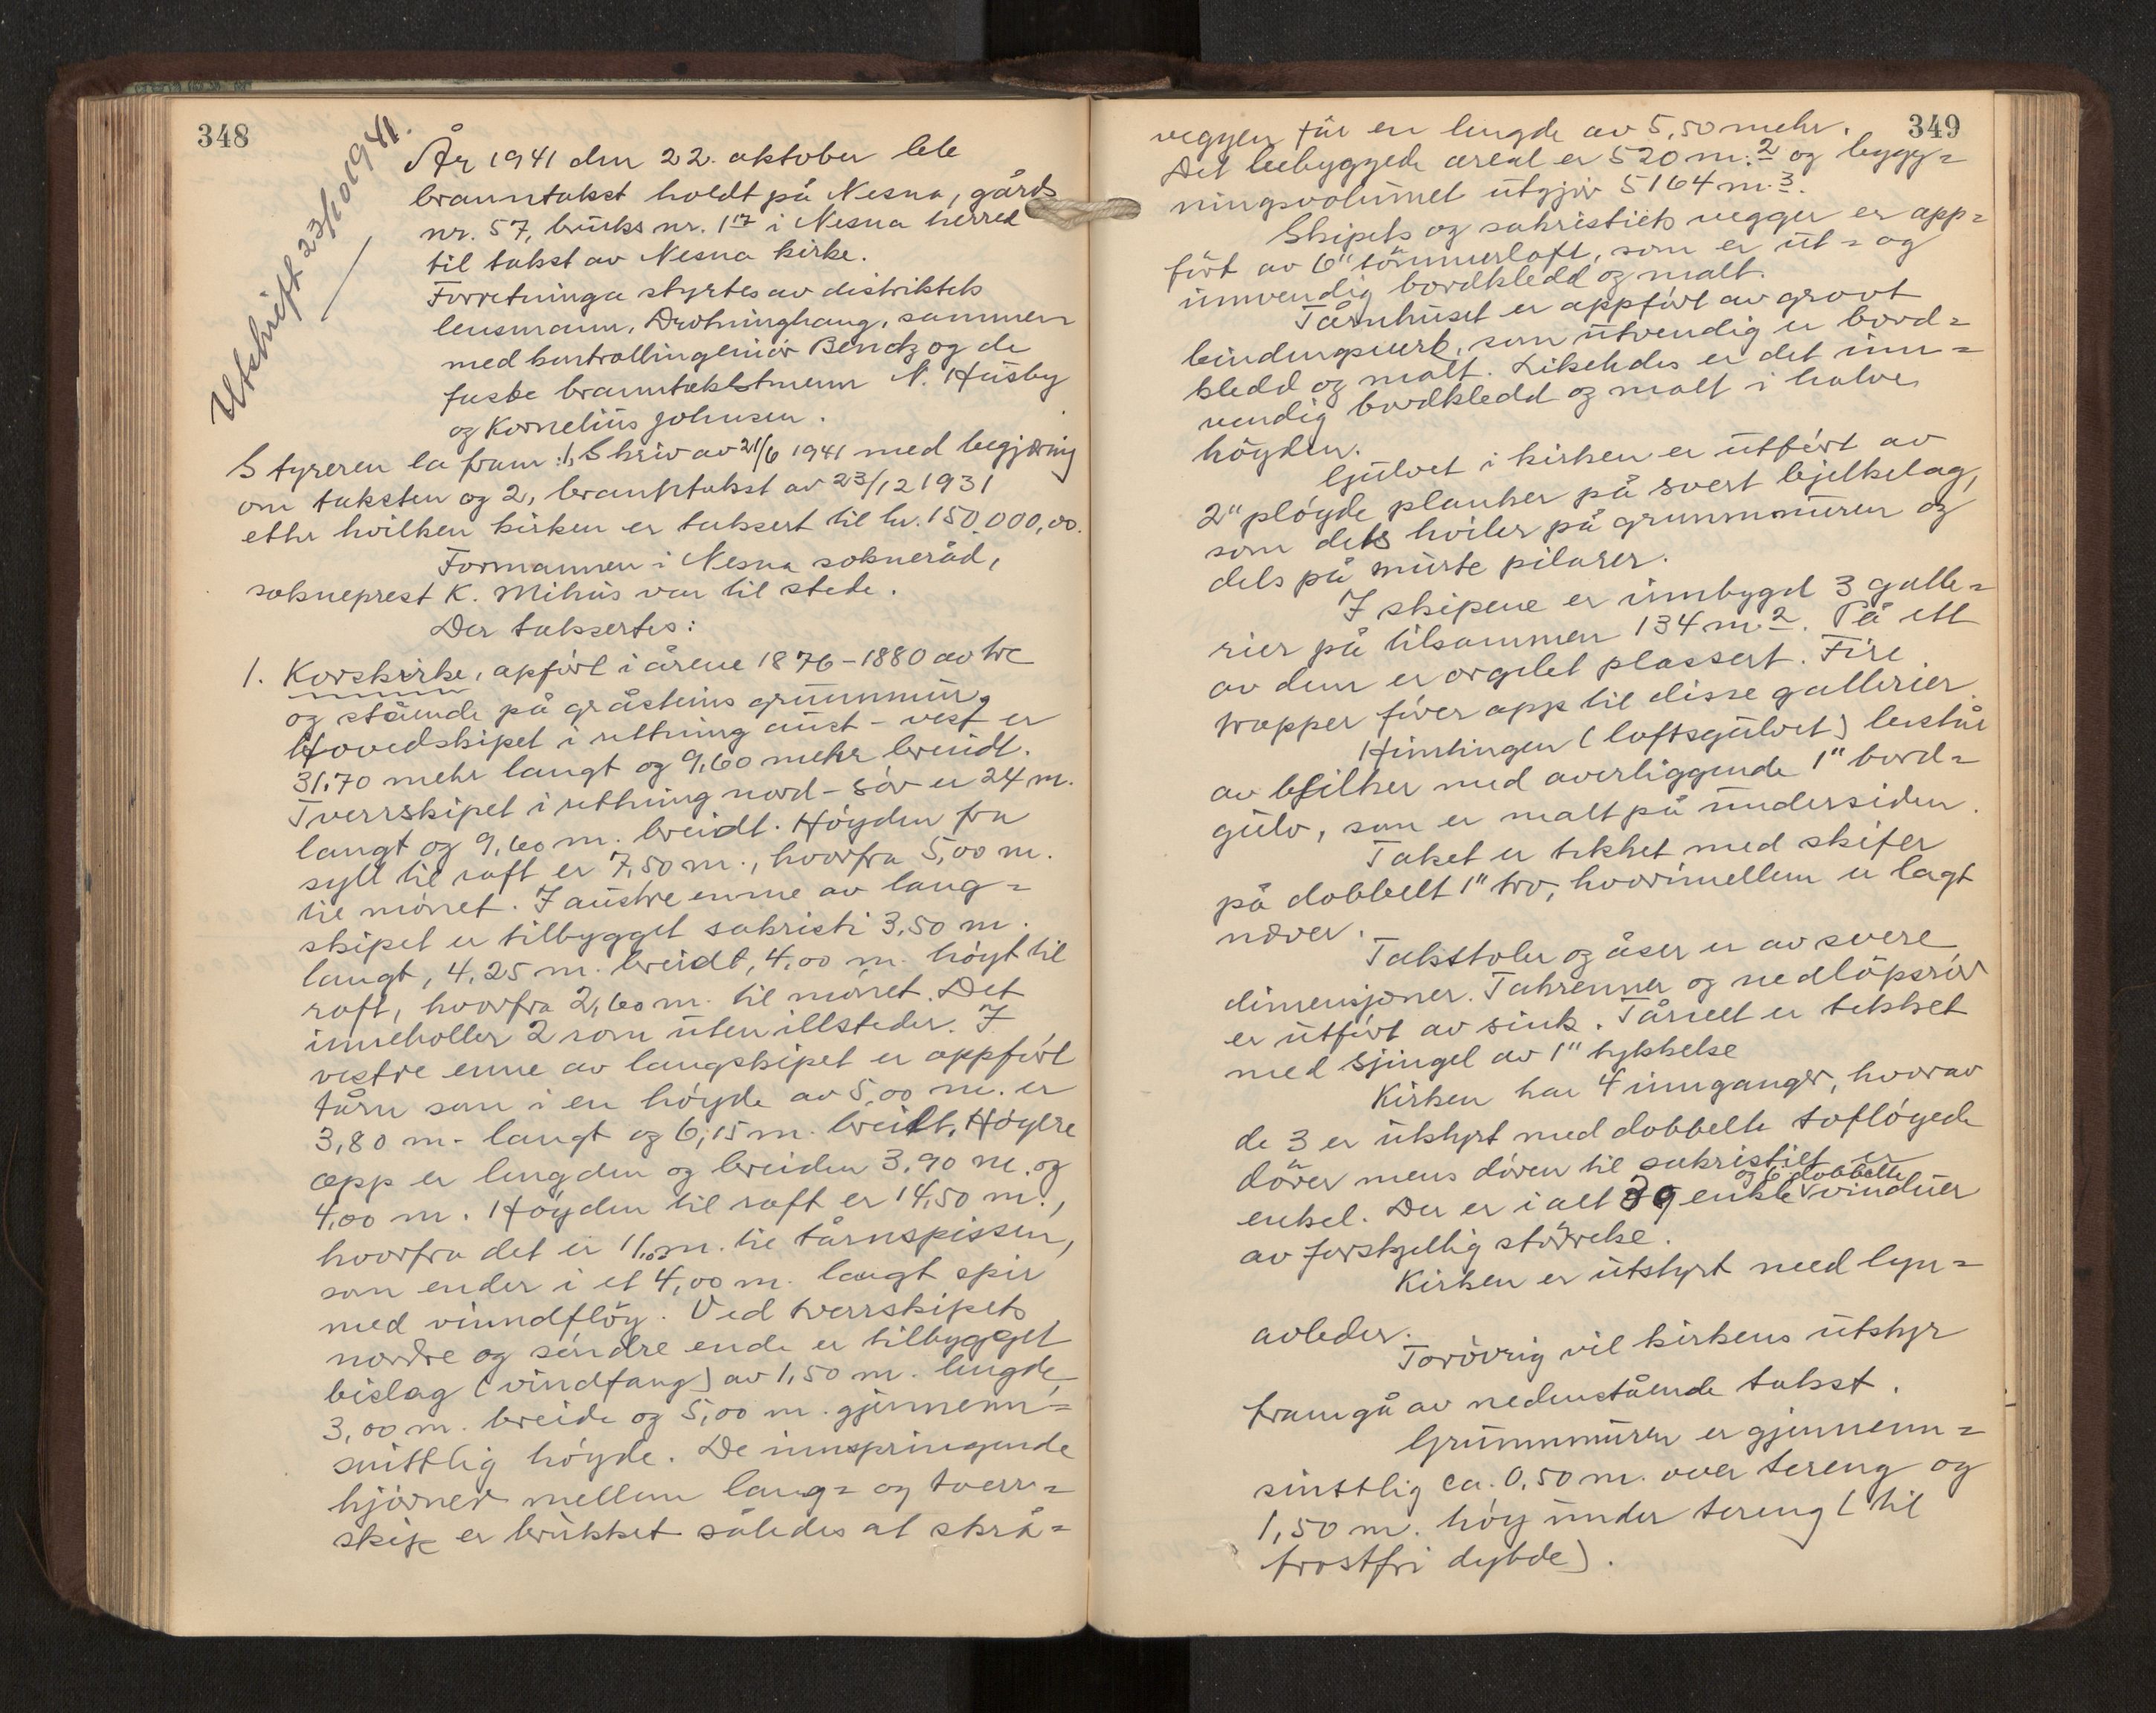 348
Utskrift 23/10 1941.
År 1941 den 22. oktober ble
branntakst holdt på Nesna, gårds
nr. 57, bruks nr. 1 17 i Nesna herred
til takst av Nesna kirke.
Forretninga styrtes av distriktets
lensmann, Drotninghaug, sammen
med kontrollingeniör Bendz og de
faste branntakstmenn N. Husby
og Kornelius Johnsen.
Styreren la fram: 1, Skriv av 21/6 1941 med begjæring
om taksten og 2, branntakst av 23/12 1931
etter hvilken kirken er taksert til kr. 150.000,00.
Formannen i Nesna sokneråd,
sokneprest K. Mihus var til stede.
Der taksertes:
1. Korskirke, apfört i årene 1876-1880 av tre
og stående på gråsteins grunnmur,
Hovedskipet i rettning aust - vest er
31,70 meter langt og 9,60 meter breidt.
Tverrskipet i rettning nord - sör er 24 m.
langt og 9,60 m. breidt. Höyden fra
syll til raft er 7,50 m., hvorfra 5,00 m.
til mönet. I austre enne av lang=
skipet er tilbygget sakristi 3,50 m.
langt, 4,25 m. breidt, 4,00 m. höyt til
raft, hvorfra 2,60 m. til mönet. Det
inneholler 2 rom uten illsteder. I
vestre enne av langskipet er oppfört
tårn som i en höyde av 5,00 m. er
3,80 m. langt og 6,15 m. breitt. Höyere
opp er lengden og breiden 3,90 m. og
4,00 m. Höyden til raft er 14,50 m.,
hvorfra det er 11,00 m. til tårnspissen,
som ender i et 4,00 m. langt spir
med vinndflöy. Ved tverrskipets
nordre og söndre ende er tilbygget
bislag (vindfang) av 1,50 m. lengde,
3,00 m. breide og 5,00 m. gjennem=
snittlig höyde. De innspringende
hjörner mellem lang= og tverr=
skip er brukket således at skrå=
349
veggen får en lengde av 5,50 meter.
Det bebyggede areal er 520 m.2 og bygg=
ningsvolumet utgjör 5164 m.3.
Skipets og sakristiets vegger er opp=
fört av 6" tömmerloft, som er ut= og
innvendig bordkledd og malt.
Tårnhuset er oppfört av grovt
bindingsverk, som utvendig er bord=
kledd og malt. Likeledes er det inn=
vendig bordkledd og malt i halve
höyden.
Gulvet i kirken er utfört av
2" plöyde planker på svert bjelkelag,
som dels hviler på grunnmuren og
dels på murte pilarer.
I skipene er innbygd 3 galle=
rier på tilsammen 134 m.2. På ett
av dem er orgelet plassert. Fire
trapper förer opp til disse gallerier.
Himlingen (loftsgulvet) består
av bjelker med overliggende 1" bord=
gulv, som er malt på undersiden.
Taket er tekket med skifer
på dobbelt 1" tro, hvorimellem er lagt
næver.
Takstoler og åser er av svere
dimensjoner. Takrenner og nedlöpsrör
er utfört av sink. Tårnet er tekket
med sjingel av 1" tykkelse
Kirken har 4 innganger, hvorav
de 3 er utstyrt med dobbelte toflöyede
dörer mens dören til sakristiet er
enkel. Der er i alt 39 enkle og 6 dobbelte vinduer
av forskjellig störrelse.
Kirken er utstyrt med lyn=
avleder.
Forövrig vil kirkens utstyr
framgå av nedenstående takst.
Grunnmuren er gjennem=
snittlig ca. 0,50 m. over tereng og
1,50 m. höy under tereng (til
frostfri dybde).